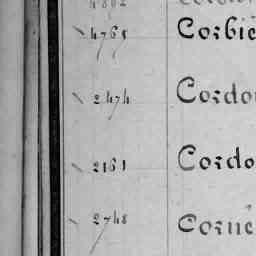 4765 Corbiè
2474 Cordo
2161 Cordo
2748 Corne